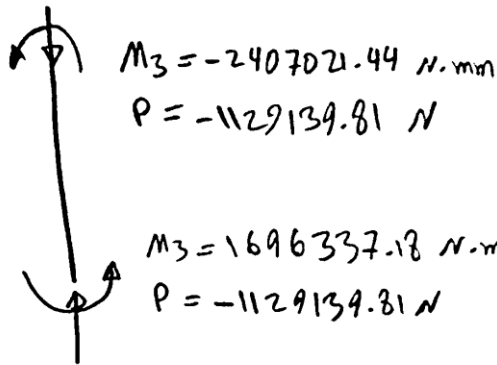 M3 = -2407021.44 N.mm
P = -1129139.81 N
M3 = 1696337.18 N.m
P = -1129139.81 N